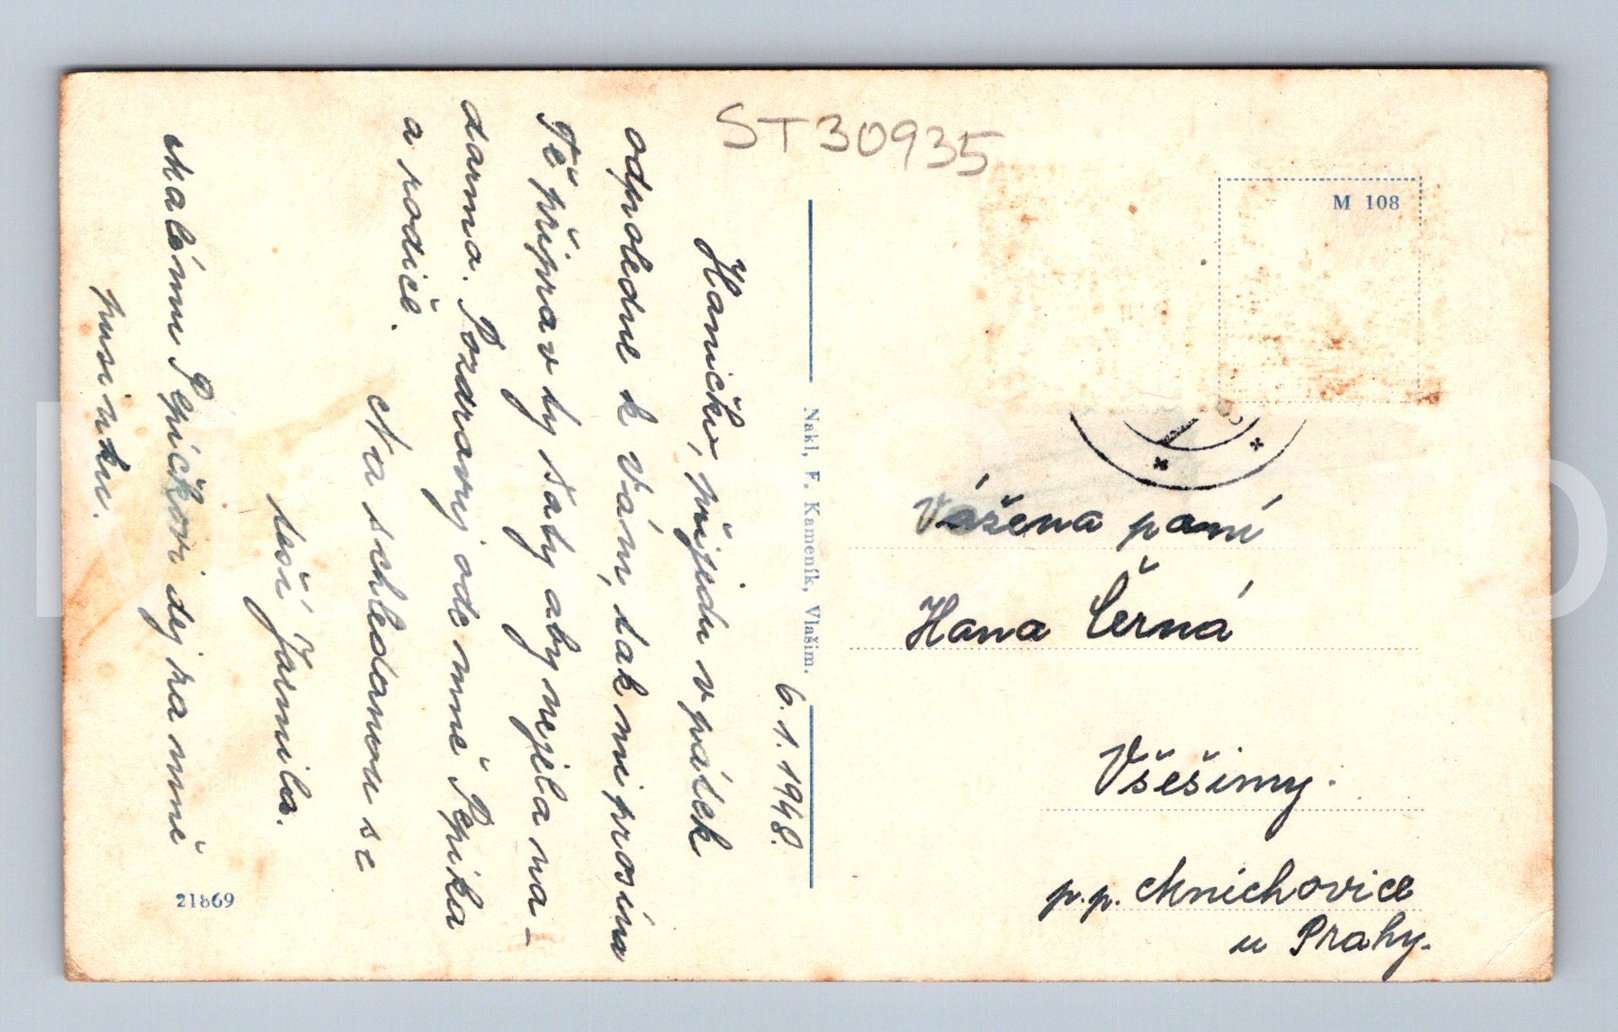 ST30935
M 108
6.1.1948.
Haničko, přijedu v pátek
odpoledne k Vám, tak mi prosím
Tě připrav ty šaty aby nejela na-
darmo. Pozdravuj ode mně Pepíka
a rodiče.
Na schledanou se
těší Jarmila.
Malému Pepíčkovi dej za mně
pusinku.
21869
Nakl. F. Kameník, Vlašim.
Vážena paní
Hana Černá
Všešimy.
p.p. Mnichovice
u Prahy.